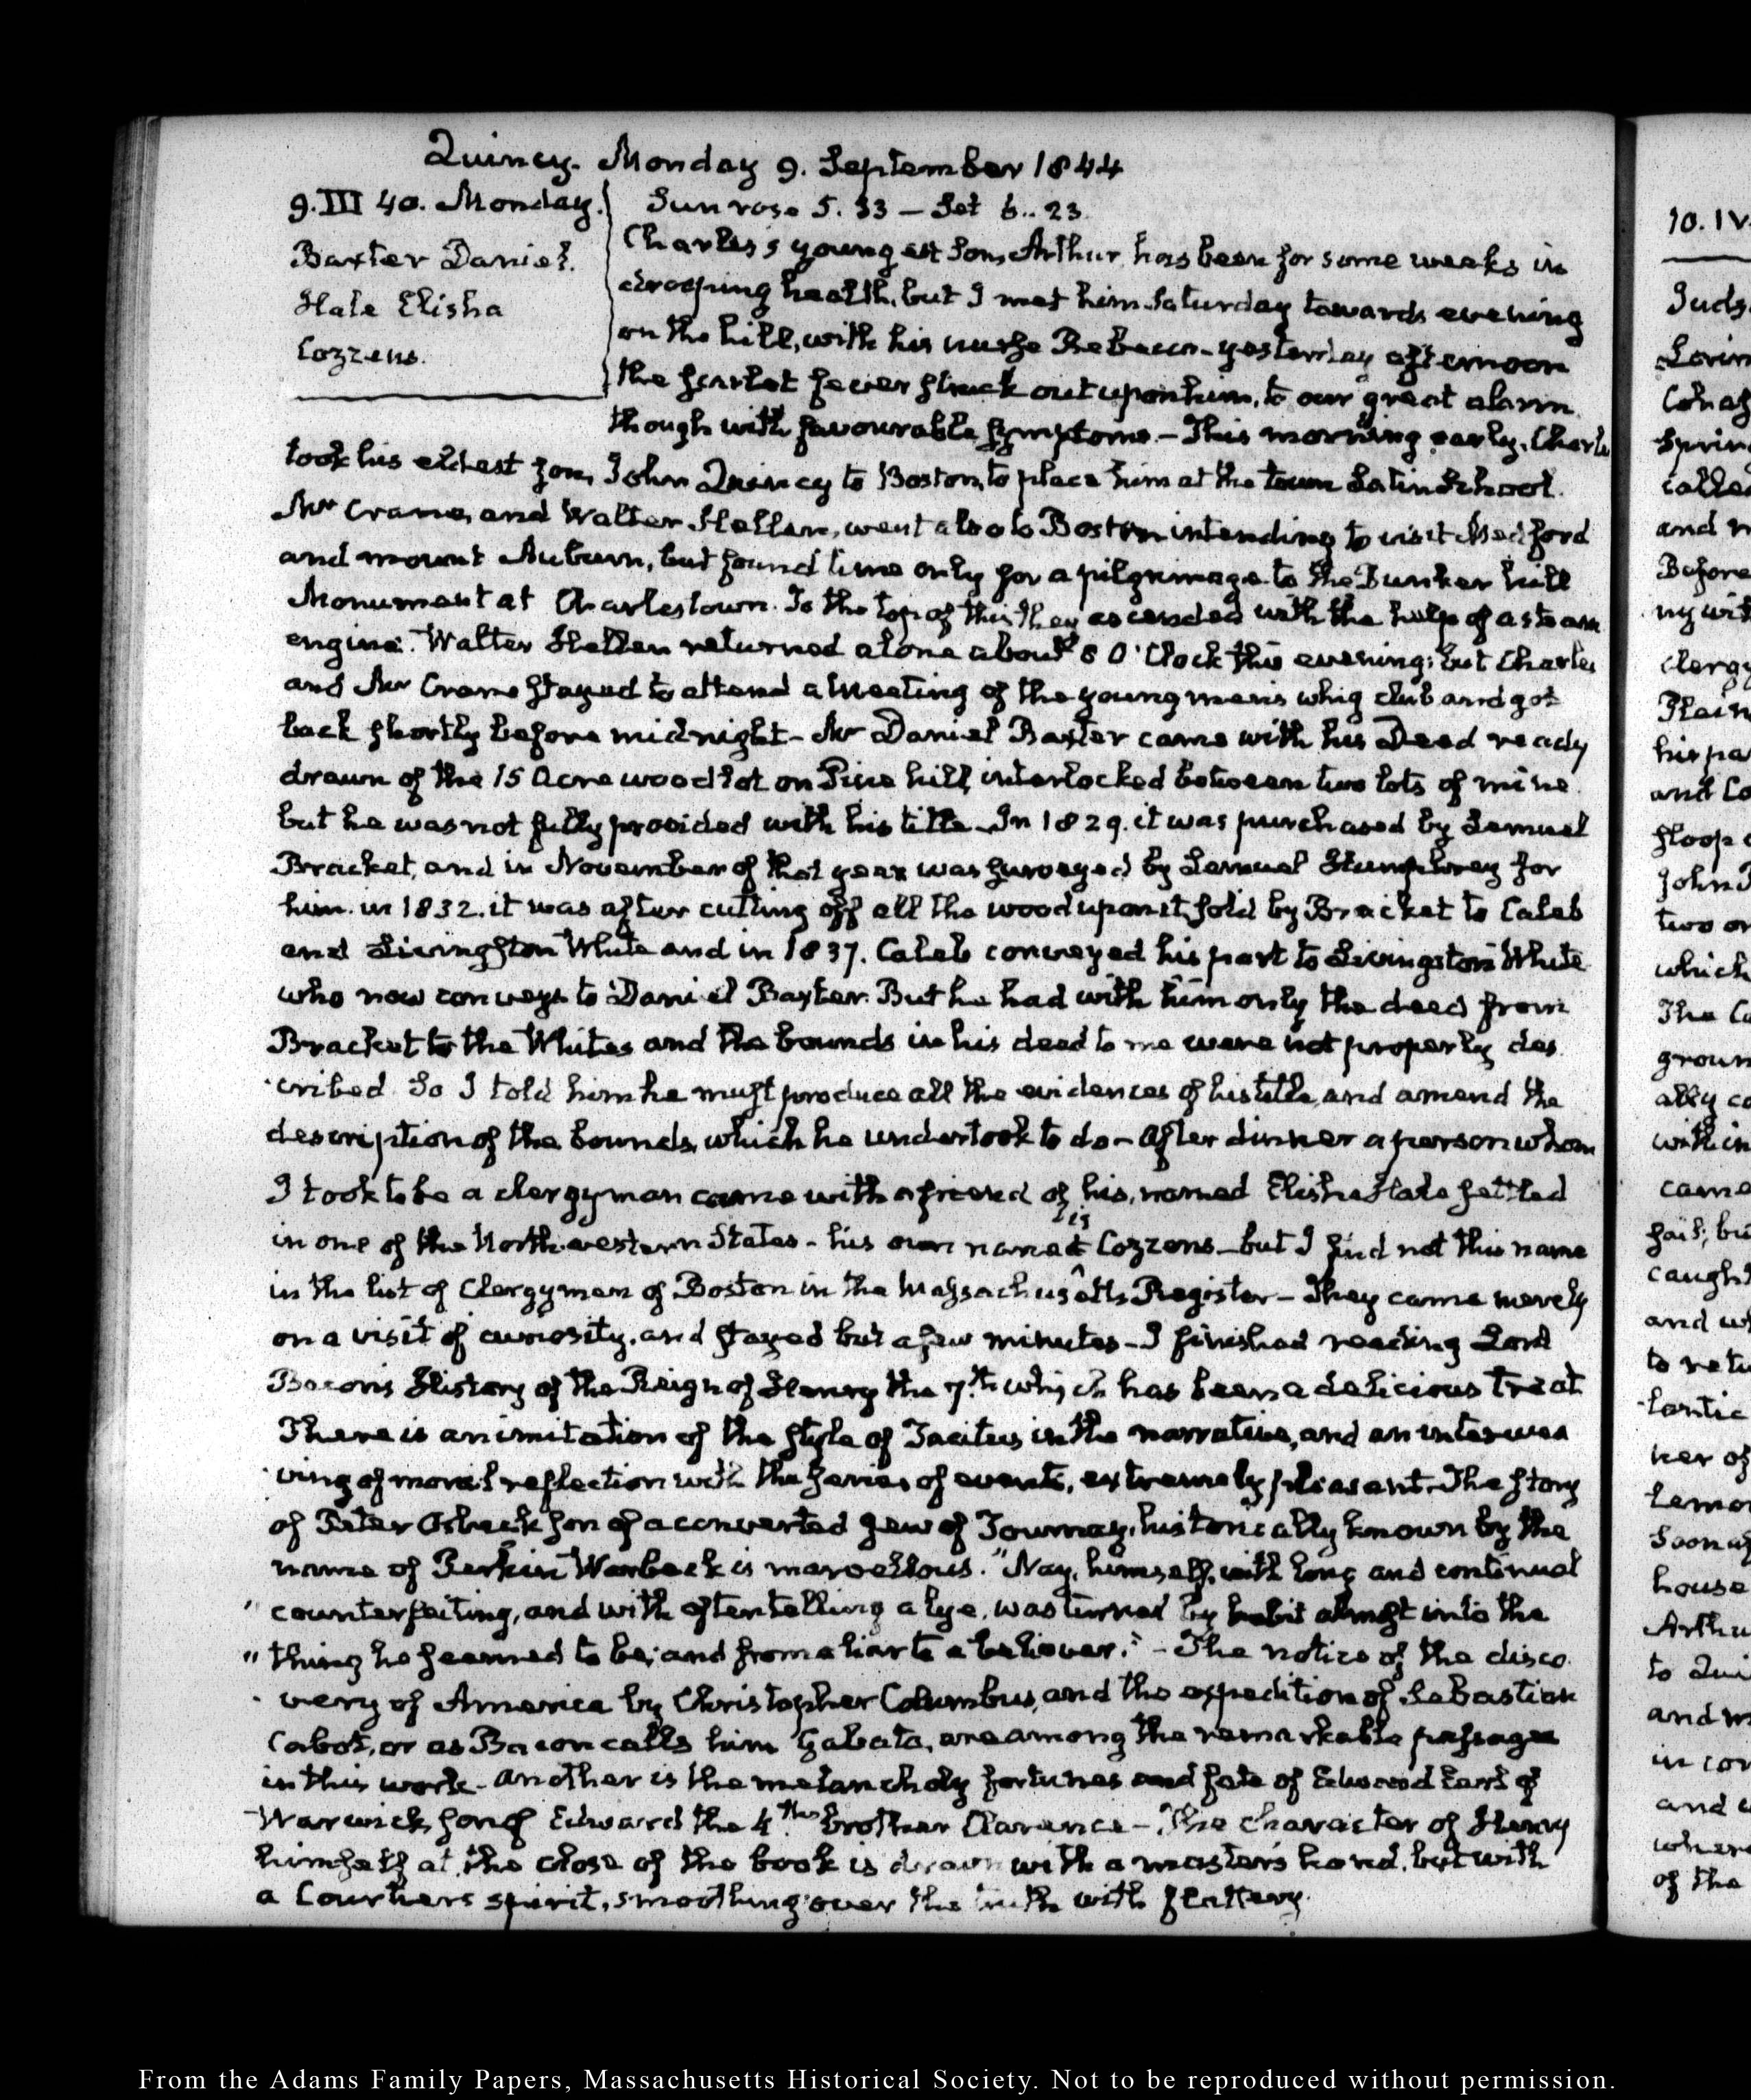 Quincy. Monday 9. September 1844
9. III 40. Monday.
Baxter Daniel.
Hale Elisha
Cozzens.
Sun rose 5. 33 — Set 6.. 23.
Charles's youngest Son, Arthur has been for some weeks in
drooping health, but I met him Saturday towards evening
on the hill, with his nurse Rebecca - yesterday afternoon
the scarlet fever struck out upon him, to our great alarm
though with favourable symptoms. - This morning early, Charles
took his eldest son, John Quincy to Boston, to place him at the town Latin School.
Mr Crane, and Walter Hellen, went also to Boston intending to visit Medford
and mount Auburn, but found time only for a pilgrimage to the Bunker hill
Monument at Charlestown. To the top of this they ascended with the help of a steam
engine. Walter Hellen returned alone about 8 O'Clock this evening; but Charles
and Mr Crane stayed to attend a meeting of the young men's whig club and got
back shortly before midnight - Mr Daniel Baxter came with his Deed ready
drawn of the 15 Acre wood lot on Pine hill, interlocked between two lots of mine
but he was not fully provided with his title. In 1829. it was purchased by Lemuel
Bracket, and in November of that year was surveyed by Lemuel Humphrey for
him. in 1832. it was after cutting off all the wood upon it, sold by Bracket to Caleb
and Livingston White and in 1837. Caleb conveyed his part to Livingston White
who now conveys to Daniel Baxter. But he had with him only the deed from
Bracket to the Whites and the bounds in his deed to me were not properly des
cribed. So I told him he must produce all the evidences of his title, and amend the
description of the bounds, which he undertook to do - After dinner a person whom
I took to be a clergyman came with a friend of his, named Elisha Hale settled
in one of the Northwestern States - his own name is Cozzens - but I find not this name
in the list of Clergymen of Boston in the Massachusetts Register - They came merely
on a visit of curiosity, and stayed but a few minutes - I finished reading Lord
Bacon's History of the Reign of Henry the 7.th which has been a delicious treat
There is an imitation of the style of Tacitus in the narrative, and an interwea
ving of moral reflection with the series of events, extremely pleasant. The story
of Peter Osbeck son of a converted Jew of Tournay, historically known by the
name of Perkin Warbeck is marvellous. "Nay, himself, with long and continual
" counterfeiting, and with often telling a lye, was turned by habit almost into the
" thing he seemed to be; and from a liar to a believer." - The notice of the disco
very of America by Christopher Columbus, and the expedition of Sebastian
Cabot, or as Bacon calls him Gabato, are among the remarkable passages
in this work - Another is the melancholy fortunes and fate of Edward Earl of
Warwick, son of Edward the 4.th's brother Clarence - The character of Henry
himself at the close of the book is drawn with a master's hand, but with
a Courtiers spirit, smoothing over the truth with flattery.
From the Adams Family Papers, Massachusetts Historical Society. Not to be reproduced without permission.